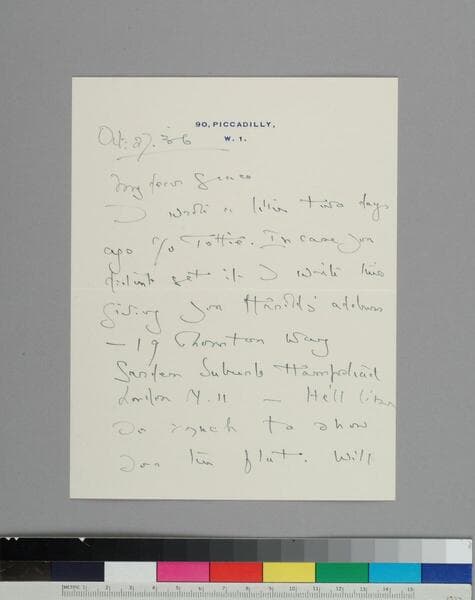 90, PICCADILLY,
W. 1.
Oct: 27. '36
My dear Grace
I wrote a letter two days
ago c/o Tottie. In case you
didnt get it I write this
giving you Harold's address
– 19 Thornton Way
Garden Suburb Hampstead
London N. 11 — He'll like
so much to show
you his flat. Will